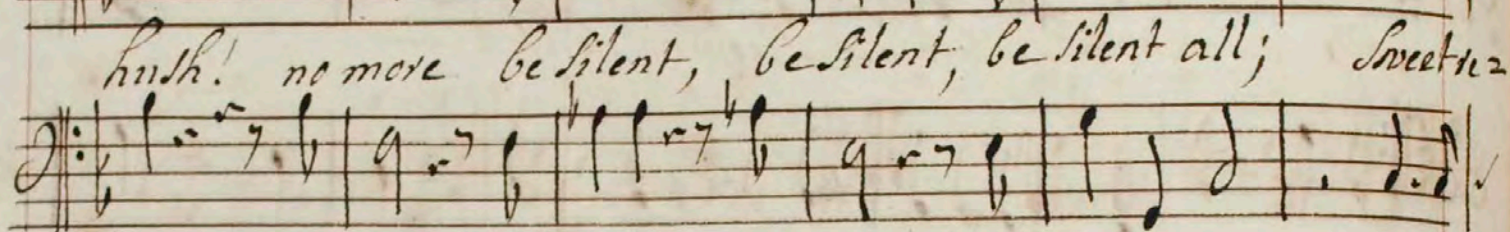 hush! no more be silent, be silent, be silent all; Sweet re=